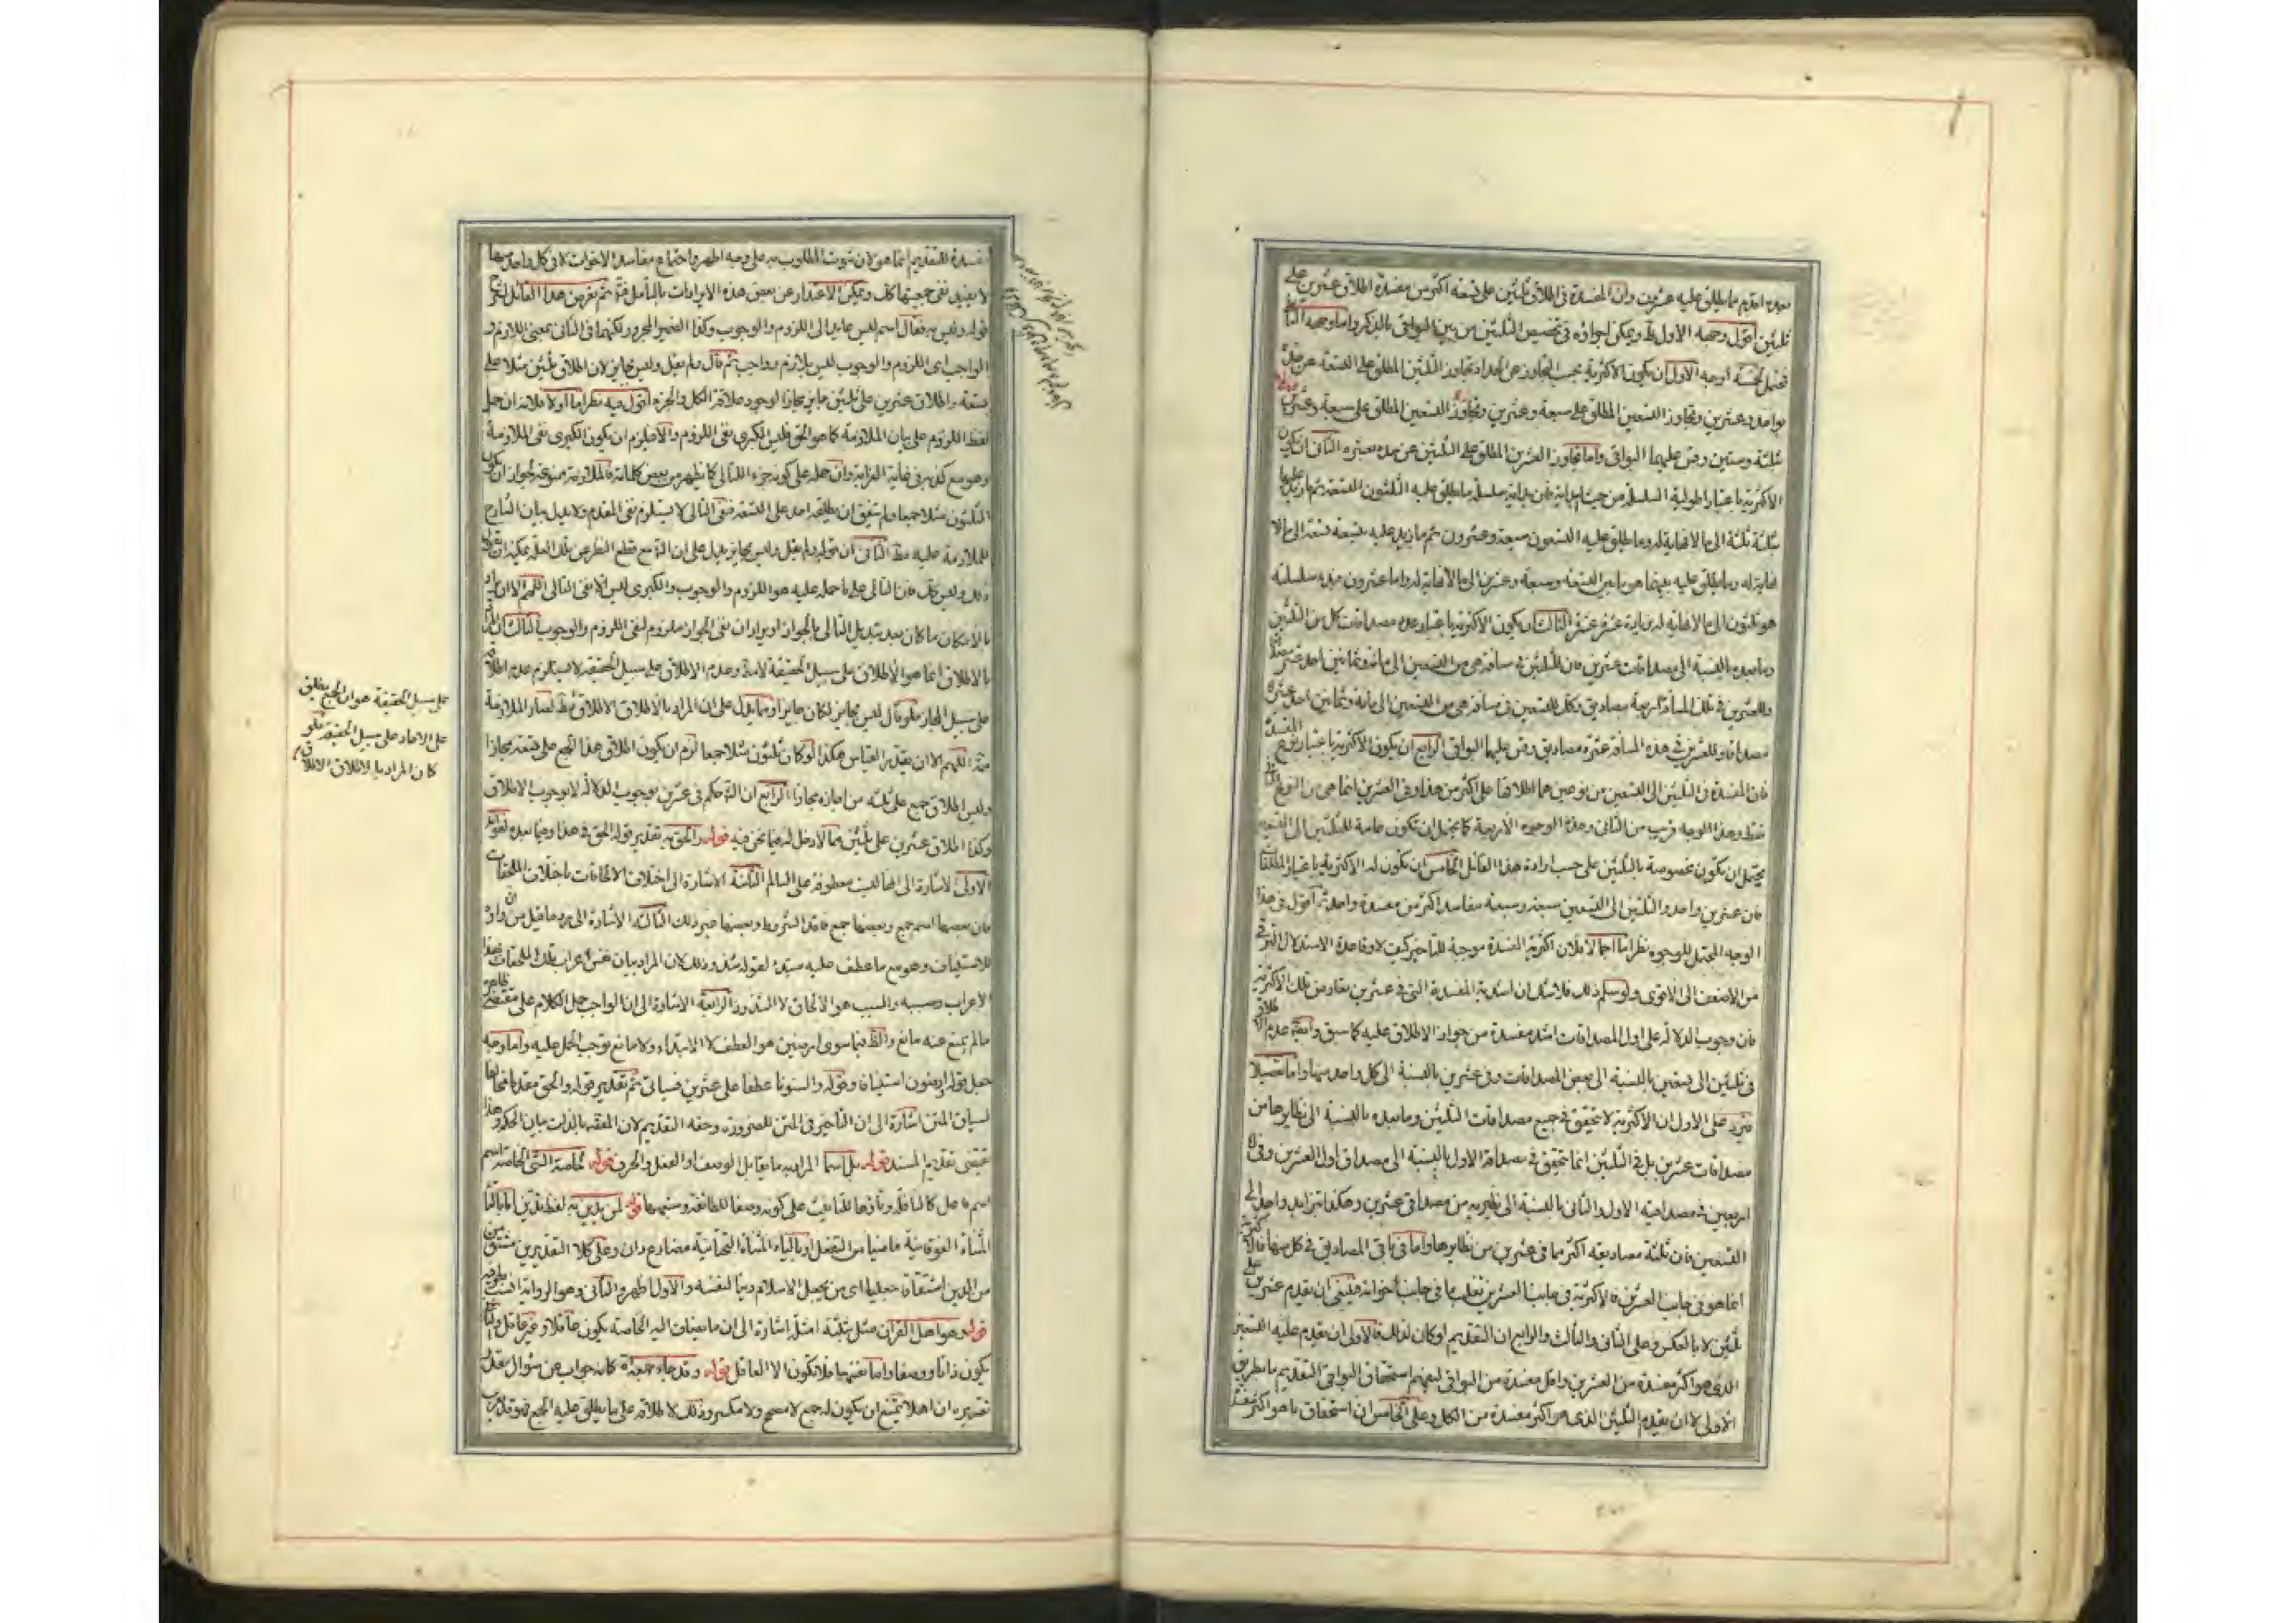 ثلثين اقول وجهه الاول ظ ويمكن اجراؤه في تخصيص الثلثين من بين البواقي بالذكر واما وجهه الثاني
فيحتمل خمسة اوجه الاول ان يكون الاكثرية بحسب التجاوز عن الحد اذ تجاوز الثلثين المطلق على التسعة عن حده
بواحد وعشرين وتجاوز التسعين المطلق على سبعة وعشرين
ثلثة وستين وقس عليهما البواقي واما تجاوز العشرين المطلق على الثلثين عن حده بعشرة الثاني ان يكون
الاكثرية باعتبار اطولية السلسلة من حيث البداية فان بداية سلسلة ما يطلق عليه الثلثون التسعة ثم ما يزيد عليها
بثلثة ثلثة الى ما لا نهاية له وما يطلق عليه التسعون سبعة وعشرون ثم ما يزيد عليه بتسعة تسعة الى ما لا
نهاية له وما يطلق عليه بينهما هو ما بين التسعة وسبعة وعشرين الى ما لا نهاية له واما عشرون فبدء سلسلته
هو ثلثون الى ما لا نهاية له بزيادة عشرة عشرة الثالث ان يكون الاكثرية باعتبار عدد مصداقات كل من الثلثين
وما بعده بالنسبة الى مصداقات عشرين فان للثلثين في مسافة هي من التسعين الى مائة وثمانين احد عشر مصداقا
وللعشرين في تلك المسافة اربعة مصاديق وكل للتسعين في مسافة هي من التسعين الى مائة وثمانين احد عشرة
مصداقا وللعشرين في هذه المسافة عشرة مصاديق وقس عليهما البواقي الرابع ان يكون الاكثرية باعتبار نوع المفسدة
فان المفسدة في الثلثين الى التسعين من نوعين هما اطلاقها على اكثر من هذا وفي العشرين انما هي من النوع
فقط وهذا الوجه قريب من الثاني وهذه الوجوه الاربعة كما يحتمل ان تكون عامة للثلثين الى التسعين
يحتمل ان يكون مخصوصة بالثلثين على حسب ارادة هذا القائل الخامس ان يكون له الاكثرية باعتبار المطلقات
فان عشرين واحد والثلثين الى التسعين سبعة وسبعة مفاسد اكثر من مفسدة واحدة ثم اقول في هذا
الوجه المحتمل للوجوه نظر اما اجمالا فلان اكثرية المفسدة موجبة للتاخير كيف لا وقاعدة الاستدلال الترقي
من الاضعف الى الاقوى ولو سلم ذلك فلا شك ان اشدية المفسدة التي في عشرين تعارض تلك الاكثرية
فان وجوب الدلالة على اول المصداقات اشد مفسدة من جواز الاطلاق عليه كما سبق وايضا عدم الاطلاق
في ثلثين الى تسعين بالنسبة الى بعض المصداقات وفي عشرين بالنسبة الى كل واحد منها واما تفصيلا
فيرد على الاول ان الاكثرية لا تتحقق في جميع مصداقات الثلثين وما بعده بالنسبة الى نظايرها من
مصداقات عشرين بل في الثلثين انما تتحقق في مصداقه الاول بالنسبة الى مصداق اول العشرين وفي
اربعين في مصداقيه الاول والثاني بالنسبة الى نظيريه من مصداقي عشرين وهكذا بتزايد واحد الى
التسعين فان ثلثة مصاديقه اكثر مما في عشرين من نظايرها واما في باقي المصاديق في كل منها فالاكثرية
انما هو في جانب العشرين فالاكثرية في جانب العشرين تغلب ما في جانب اخواته فينبغي ان يقدم عشرين على
ثلثين لا بالعكس وعلى الثاني والثالث والرابع ان التقديم لو كان لذلك فالاولى ان يقدم عليه التسعين
الذي هو اكثر مفسدة من العشرين واقل مفسدة من البواقي ليفهم استحقاق البواقي التقديم بالطريق
الاولى لا ان يقدم الثلثين الذي هو اكثر مفسدة من الكل وعلى الخامس ان استحقاق ما هو اكثر مفسدة
مفسدة للتقديم انما هو لان ثبوت المطلوب به على وجه اظهر واجتماع مفاسد الاخوات لا في كل واحد منها
لا يفيد نفي جمعيتها كك ويمكن الاعتذار عن بعض هذه الايرادات بالتأمل فتأمل ثم تعرض هذا القائل لشرح
قوله وليس به فقال اسم ليس عايد الى اللزوم والوجوب وكذا الضمير المجرور لكنهما في الثاني بمعنى اللازم و
الواجب اى اللزوم والوجوب ليس بلازم وواجب ثم قال ولم يقل وليس بجايز لان اطلاق ثلثين مثلا على
تسعة واطلاق عشرين على ثلثين جايز مجازا لوجود علاقة الكل والجزء اقول فيه نظر اما اولا فلانه ان حمل
لفظ اللزوم على بيان الملازمة كما هو الحق فليس الكبرى نفي اللزوم والا فيلزم ان يكون الكبرى نفي الملازمة
وهو مع كذبه في غاية الغرابة وان حمله على كونه جزء للتالي كما يظهر من بعض كلماته فالملازمة ممنوعة لجواز ان يكون
الثلثون مثلا جمعا ولم يتفق ان يطلقه احد على التسعة فنفي التالي لا يستلزم نفي المقدم ولا دليل بيان الشارح
للملازمة عليه فقط الثاني ان قوله ولم يقل وليس بجايز يدل على ان
ذلك وليس كك فان التالي على ما حمله عليه هو اللزوم والوجوب والكبرى ليس الا نفي التالي اللهم الا ان يراد
بالامكان ما كان بعد تبديل التالي بالجواز او يراد ان نفي الجواز ملزوم لنفي اللزوم والوجوب الثالث ان المراد
بالاطلاق انما هو الاطلاق على سبيل الحقيقة وعدم الاطلاق على سبيل الحقيقة لا يستلزم عدم اطلاقه
على سبيل المجاز فلو قال ليس بجايز لكان جايزا ومما يدل على ان المراد بالاطلاق الاطلاق
اللهم الا ان يقدر القياس هكذا لو كان ثلثون مثلا جمعا لزم ان يكون اطلاق هذا الجمع على تسعة مجازا
وليس اطلاق جمع على ثلثة من احاده مجازا الرابع ان الشارح حكم في عشرين بوجوب الدلالة لا بوجوب الاطلاق
وكذا اطلاق عشرين على ثلثين مما لا دخل له فيما نحن فيه قوله والحق به تقدير قوله الحق في هذا وفيما بعده لفوايد
الاولى الاشارة الى انها ليست معطوفة على السالم الثانية الاشارة الى اختلاف الالحاقات باختلاف الملحقات
فان بعضها اسم جمع وبعضها جمع فاقد الشروط وبعضها غير ذلك الثالثة الاشارة الى رد ما قيل من ان واو
للاستيناف وهو مع ما عطف عليه مبتدء لقوله شذ وذلك لان المراد بيان نفس اعراب تلك الملحقات
الاعراب وسببه والسبب هو الالحاق لا الشذوذ الرابعة الاشارة الى ان الواجب حمل الكلام على مقتضى ظاهره
ما لم يمنع عنه مانع والظاهر فيما سوى ارضين هو العطف لا الابتداء ولا مانع يوجب الحمل عليه واما وجه
جعل قوله ارضون استينافا وقوله والسنونا عطفا على عشرين فسيأتي ثم تقدير قوله والحق مقدما مخالفا
لسياق المتن اشارة الى ان التأخير في المتن للضرورة وحقه التقديم لان المقصود بالذات بيان الحكم وهذا
يقتضي تقديم المسند قوله بل اسما المراد به ما يقابل الوصف او الفعل والحرف قوله
اسم فاعل كالنافلة وتاؤها للتأنيث على كونه وصفا للطائفة وشبهها قوله لمن يدين به لفظ تدين اما بالتاء
المثناة الفوقانية ماضيا من التفعل او بالياء المثناة التحتانية مضارع دان وعلى كلا التقديرين مشتق
من الدين اشتقاقا جعليا اى من يجعل الاسلام دينا لنفسه والاول اظهر والثاني وهو الرواية انسب
قوله وهو اهل القرآن مثل بثلثة امثلة اشارة الى ان ما يضاف اليه الخاصة يكون عاقلا وغير عاقل
يكون ذاتا ووصفا واما نفسها فلا تكون الا العاقل قوله وقد جاء جمعه كانه جواب عن سؤال مقدر
تقديره ان اهلا يمتنع ان يكون له جمع لا مصحح ولا مكسر وذلك لاطلاقه على ما يطلق عليه الجمع
على سبيل الحقيقة هو ان الجمع يطلق
على الاحاد على سبيل الحقيقة فلو
كان المراد بالاطلاق الاطلاق